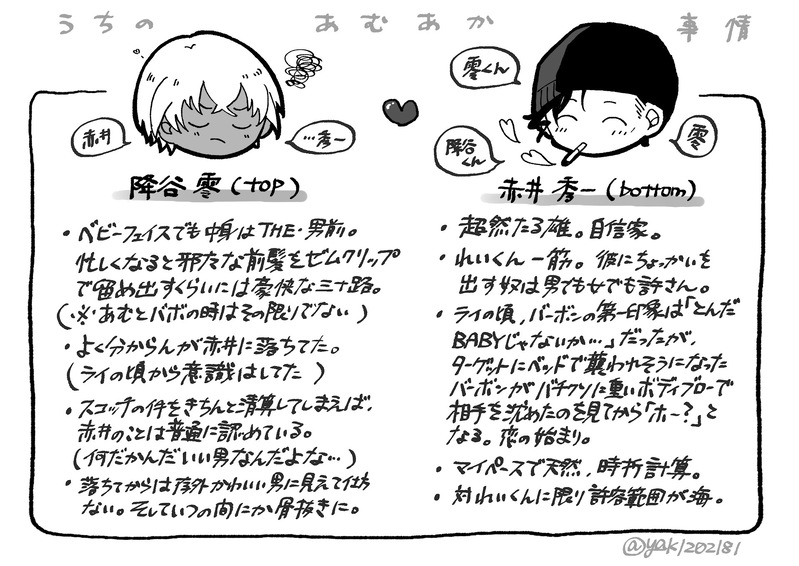 うちの あむあか 事情
赤井
…秀一
零くん
降谷くん
零
降谷 零(top)
・ベビーフェイスでも中身はTHE・男前。
忙しくなると邪魔な前髪をゼムクリップ
で留め出すくらいには豪快な三十路。
(※あむとバボの時はその限りでない)
・よく分からんが赤井に落ちてた。
(ライの頃から意識はしてた)
・スコッチの件をきちんと清算してしまえば、
赤井のことは普通に認めている。
(何だかんだいい男なんだよな…)
・落ちてからは存外かわいい男に見えて仕方
ない。そしていつの間にか骨抜きに。
赤井 秀一(bottom)
・超然たる雄。自信家。
・れいくん一筋。彼にちょっかいを
出す奴は男でも女でも許さん。
・ライの頃、バーボンの第一印象は「とんだ
BABYじゃないか…」だったが、
ターゲットにベッドで襲われそうになった
バーボンがバチクソに重いボディブローで
相手を沈めたのを見てから「ホー?」と
なる。恋の始まり。
・マイペースで天然、時折計算。
・対れいくんに限り許容範囲が海。
@yak1202181